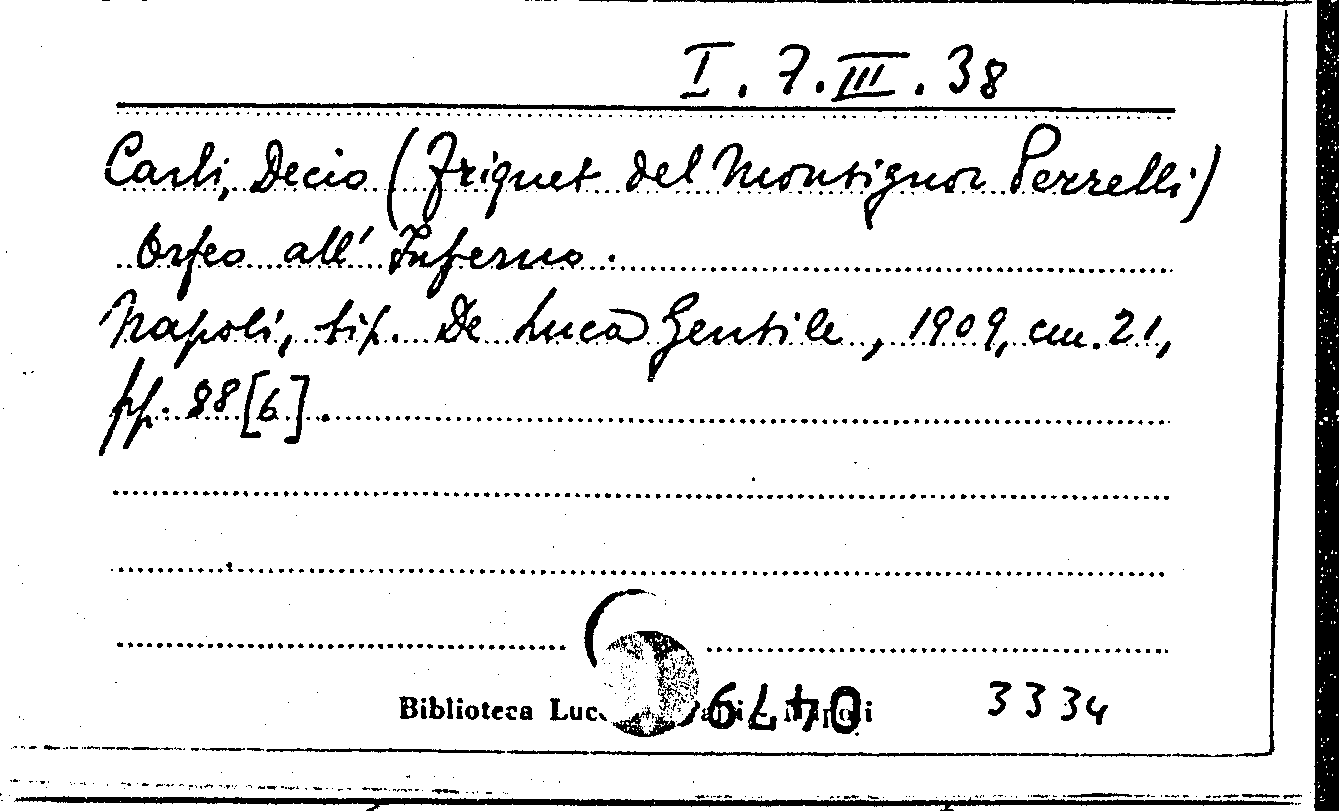 I. 7. III. 38
Carli, Decio (Friquet del Monsignor Perrelli)
Orfeo all' Inferno.
Napoli, tip. De Luca Gentile, 1909, cm. 21,
pp. 88 [6].
Biblioteca
04479
3334